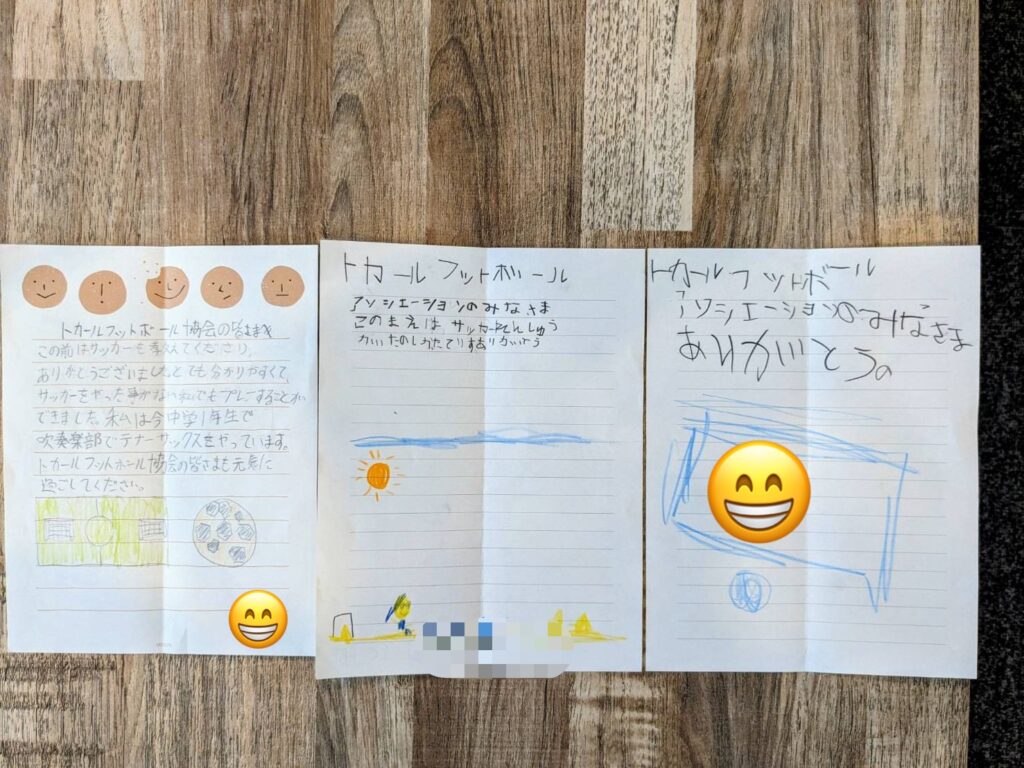 トカールフットボール協会の皆さまへ
この前はサッカーを教えてくださり、
ありがとうございました。とても分かりやすくて、
サッカーをやった事がない私でもプレーすることが
できました。私は今中学1年生で
吹奏楽部でテナーサックスをやっています。
トカールフットボール協会の皆さまも元気に
過ごしてください。
トカールフットボール
アソシエーションのみなさま
このまえは サッカーれんしゅう
トカールフットボール
アソシエーションのみなさま
ありがとう。